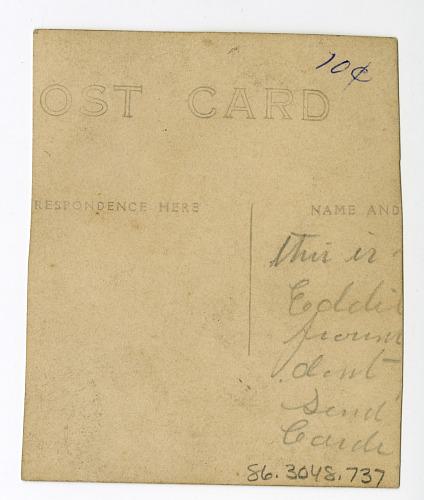 10¢
OST CARD
RESPONDENCE HERE
NAME AND
this is
Eddi
from
dont
send
Cards
86.3048.737